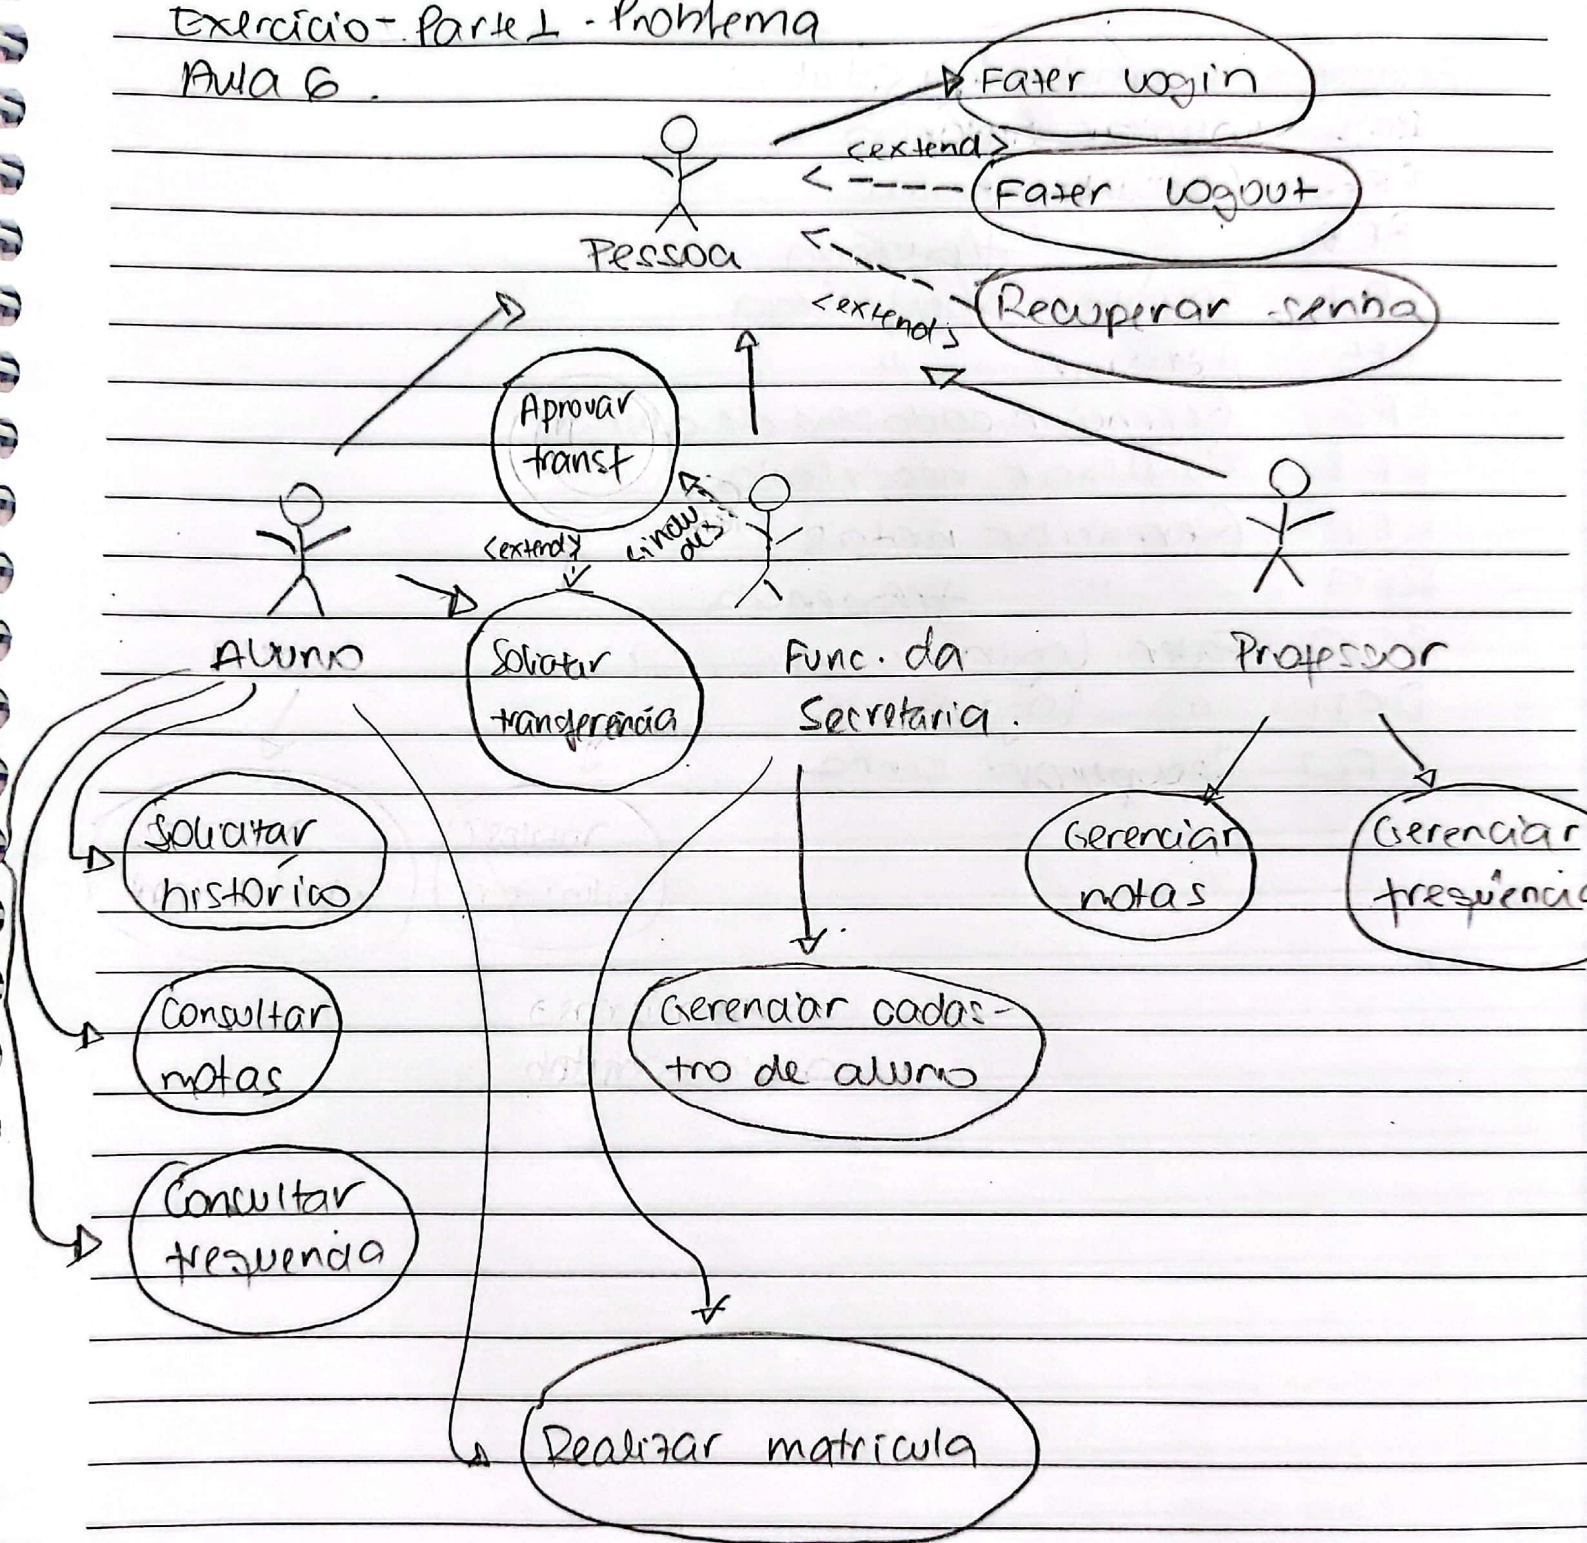 Exercício - Parte 1 - Problema
Aula 6.
Fazer login
<extend>
Fazer logout
Pessoa
<extend>
Recuperar senha
Aprovar
transf
<extend>
<include>
Aluno
Solicitar
transferência
Func. da
Secretaria.
Professor
Solicitar
histórico
Gerenciar
notas
Gerenciar
frequência
Consultar
notas
Gerenciar cadas-
tro de aluno
Consultar
frequencia
Realizar matricula